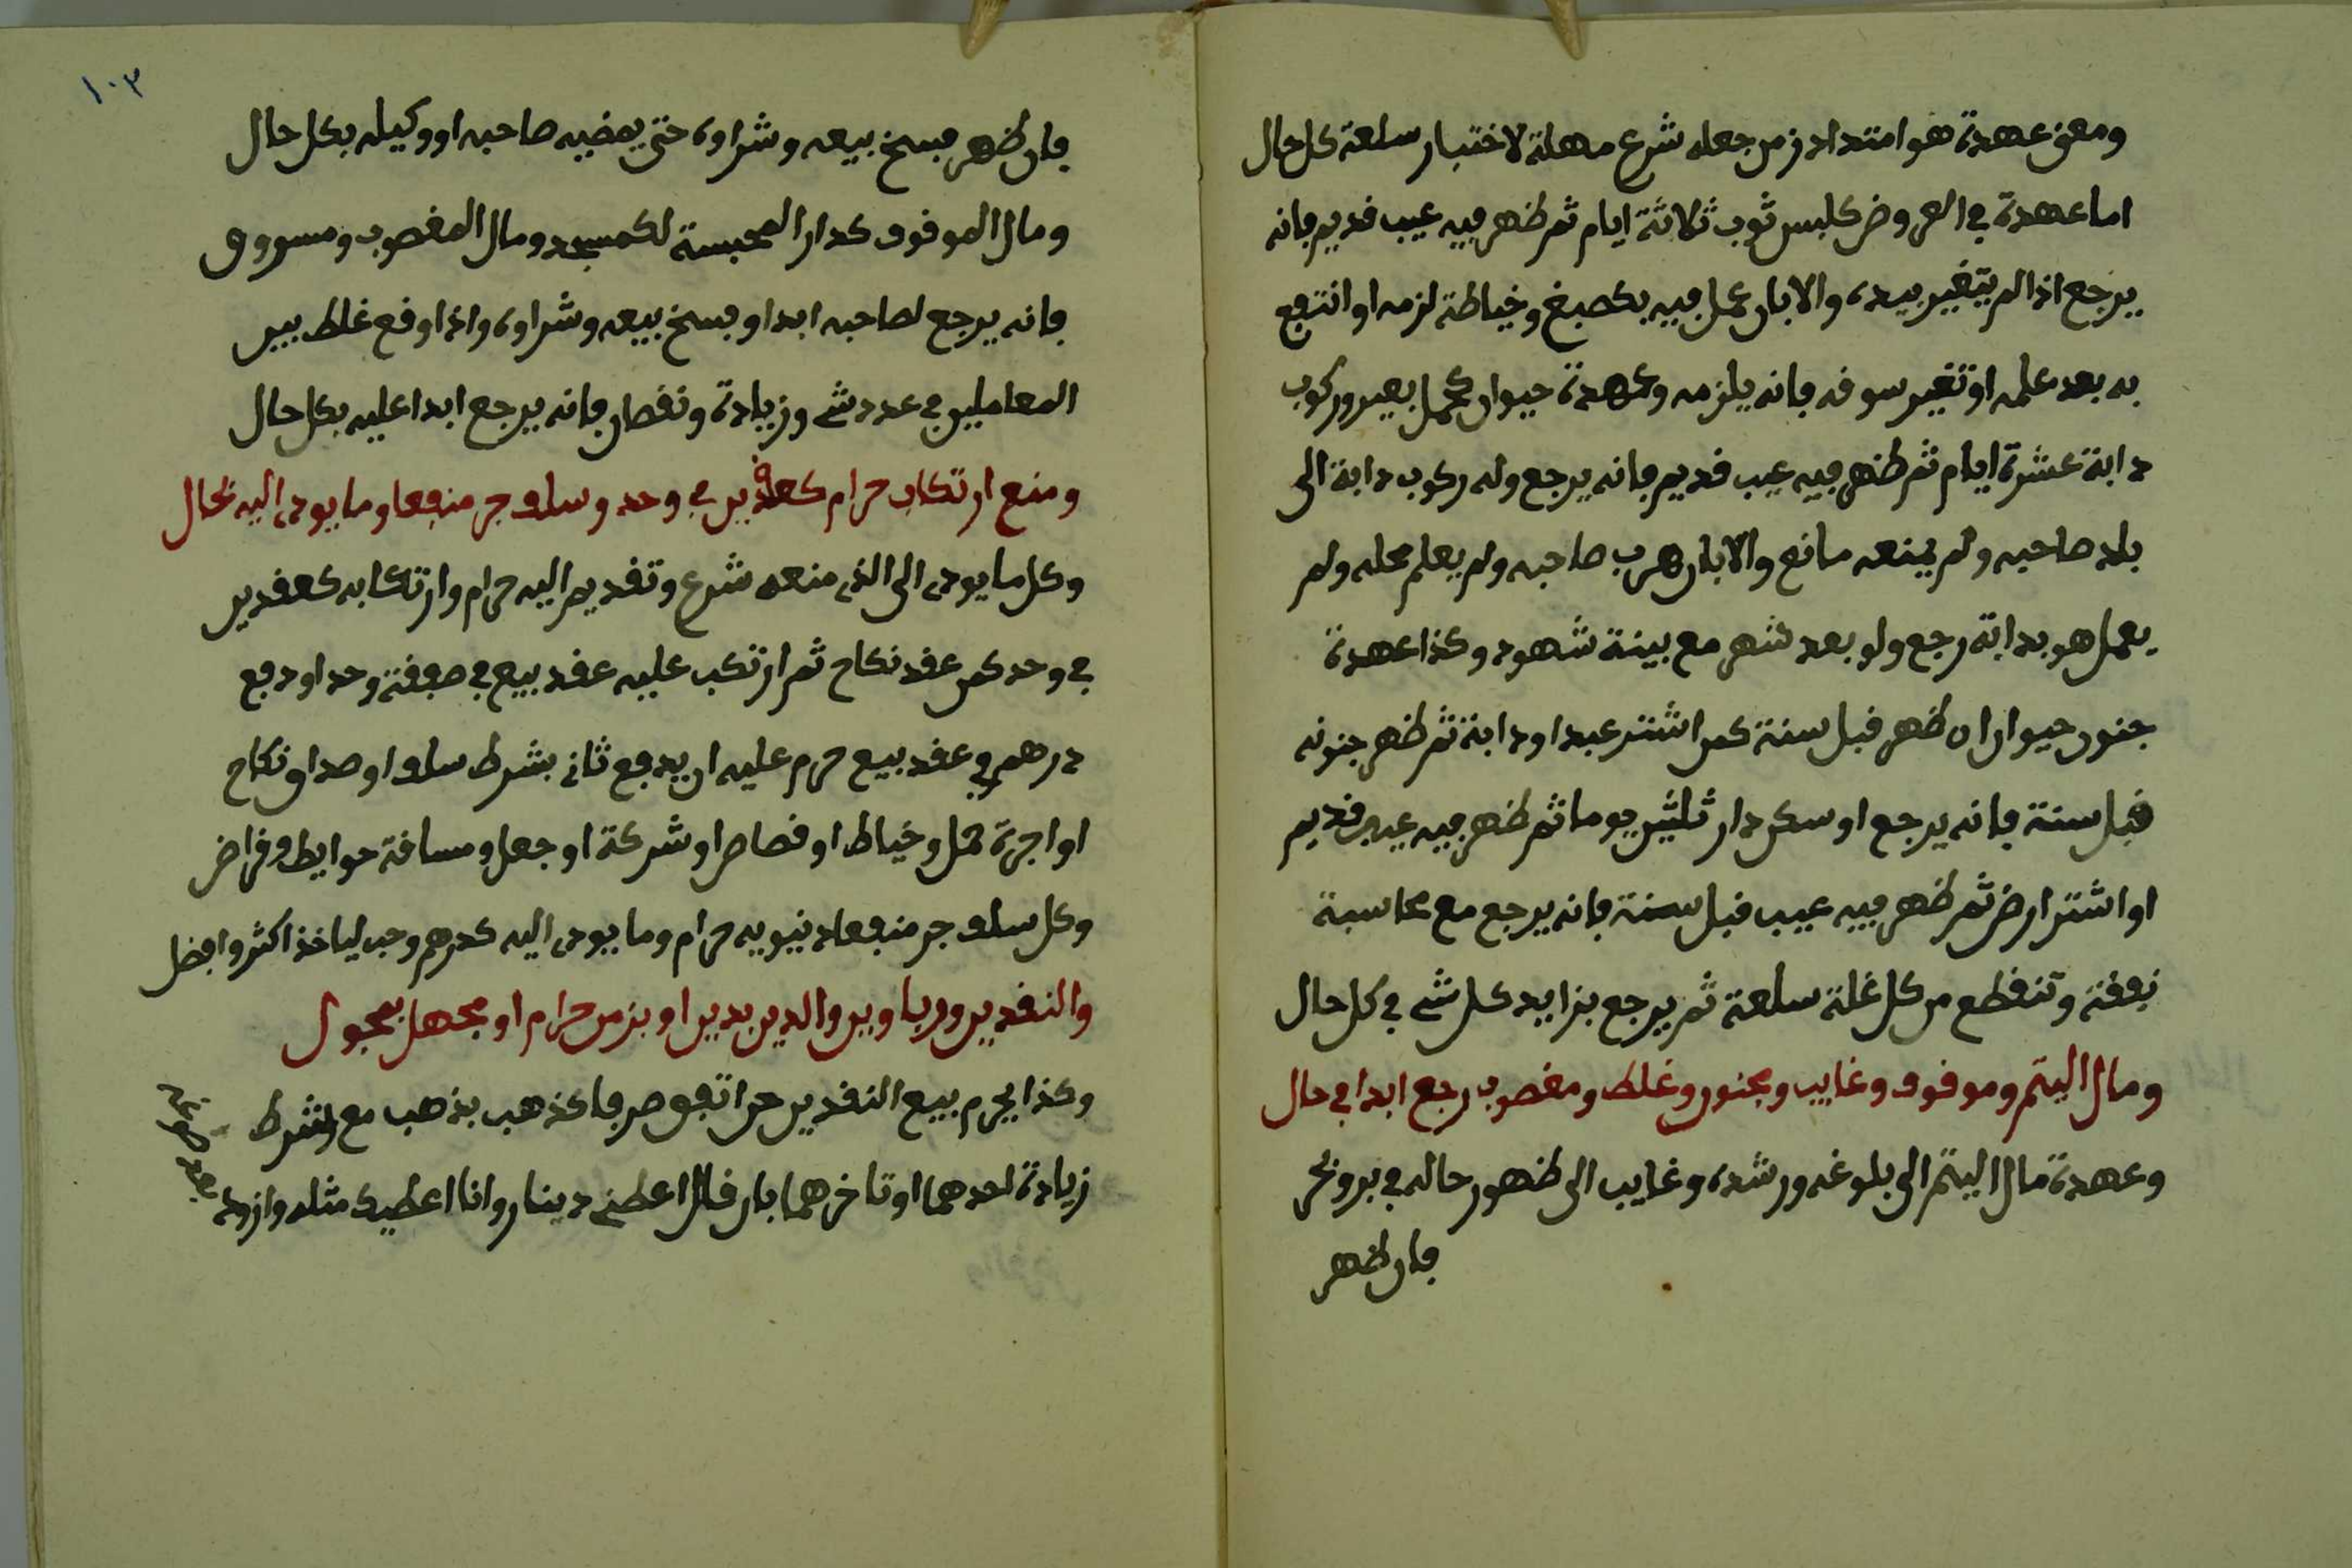 ومعنى عهدة هو امتداد زمن جعله شرع مهلة لاختبار سلعة كل حال
اما عهدة في العروض كلبس ثوب ثلاثة ايام ثم ظهر فيه عيب قديم فانه
يرجع اذا لم يتغير بيده والا بان عمل فيه بكصبغ وخياطة لزمه او انتفع
به بعد علمه او تغير سوقه فانه يلزمه وعهدة حيوان كحمل بعير وركوب
دابة عشرة ايام ثم ظهر فيه عيب قديم فانه يرجع وله ركوب دابة الى
بلد صاحبه ولم يمنعه مانع والا بان هرب صاحبه ولم يعلم محله ولم
يعمل هو بدابة رجع ولو بعد شهر مع بينة شهود وكذا عهدة
جنون حيوان ان ظهر قبل سنة كمن اشتر عبدا او دابة ثم ظهر جنونه
قبل سنة فانه يرجع او سكن دار ثلثين يوما ثم ظهر فيه عيب قديم
او اشتر ارض ثم ظهر فيه عيب قبل سنة فانه يرجع مع محاسبة
نفقة وتنقطع من كل غلة سلعة ثم يرجع بزايد كل شے في كل حال
ومال اليتم وموقوف وغايب ومجنون وغلط ومغصوب رجع ابدا في حال
وعهدة مال اليتم الى بلوغه ورشده وغايب الى ظهور حاله في بر وبحر
فان ظهر
١٠٣
فان ظهر فسخ بيعه وشراوه حتى يمضيه صاحبه او وكيله بكل حال
ومال الموقوف كدار المحبسة لكمسجد ومال المغصوب ومسروق
فانه يرجع لصاحبه ابدا وفسخ بيعه وشراوه واذا وقع غلط بين
المعاملين في عدد شے وزيادة ونقصان فانه يرجع ابدا عليه بكل حال
ومنع ارتكاب حرام كعقدين في وحد وسلف جر منفعا وما يودى اليه بحال
وكل ما يودى الى الذى منعه شرع وتقديم اليه حرام وارتكابه كعقدين
في وحد كمن عقد نكاح ثم ارتكب عليه عقد بيع في صفقة وحد او دفع
درهم في عقد بيع حرم عليه ان يدفع ثانى بشرط سلف او صداق نكاح
او اجرة حمل وخياط او قصاص او شركة او جعل ومساقة حوايط وقراض
وكل سلف جر منفعا دنيويه حرام وما يودى اليه كدرهم وحب لياخذ اكثر وافضل
والنقدين وربا وين والدين بدين او بزمن حرام او مجهل بمجول
وكذا يحرم بيع النقدين حن اتفق صرفا كذهب بذهب مع بشرط
زيادة لحدهما او تاخرهما بان قال اعطنى دينار وانا اعطيك مثله وازده